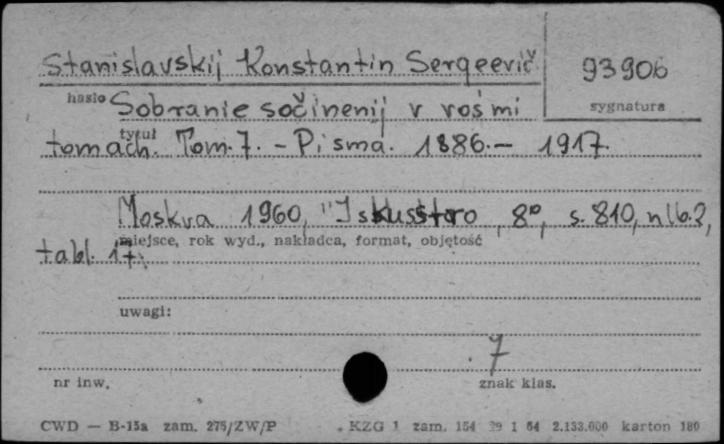 Stanislavskij Konstantin Sergeevič 93906
hasło sygnatura
Sobranie sočinenij v vośmi
tytuł
tomach. Tom. 7. - Piśma. 1886. - 1917.
Moskva 1960, "Iskusstvo, 8°, s. 810, nlb. 2,
miejsce, rok wyd., nakładca, format, objętość
tabl. 17.
uwagi:
7
nr inw. znak klas.
CWD — B-15a zam. 275/ZW/P KZG 1 zam. 154 29 1 64 2.133.000 karton 180